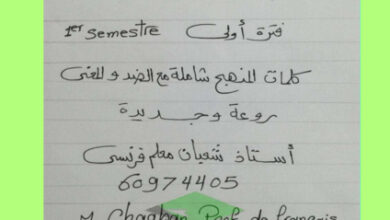 1er semestre فترة أولى
كلمات المنهج شاملة مع الضد والمعنى
روعة وجديدة
أستاذ شعبان معلم فرنسى
60974405
M. Chaaban Prof de français